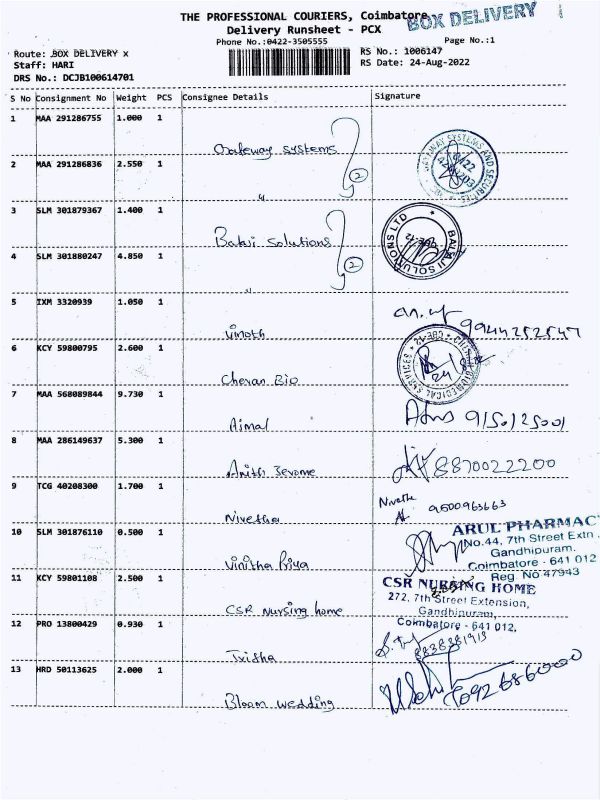 THE PROFESSIONAL COURIERS, Coimbatore
BOX DELIVERY
Delivery Runsheet - PCX
Phone No.:0422-3505555
Page No.:1
Route: BOX DELIVERY x
RS No.: 1006147
Staff: HARI
RS Date: 24-Aug-2022
DRS No.: DCJB100614701
S No Consignment No Weight PCS Consignee Details Signature
1 MAA 291286755 1.000 1 Gateway Systems
2 MAA 291286836 2.550 1 〃
2
GATEWAY SYSTEMS AND SECURITIES
3 SLM 301879367 1.400 1 Balaji Solutions
4 SLM 301880247 4.850 1 〃
2
BALAJI SOLUTIONS LTD
CBE-12
5 IXM 3320939 1.050 1 Vinoth 9944252547
6 KCY 59800795 2.600 1 Cheran Bio
CBE-12
7 MAA 568089844 9.730 1 Ajmal
8 MAA 286149637 5.300 1 Anith Jerome 8870022200
9 TCG 40208300 1.700 1 Nivetha Nivetha 9500963663
10 SLM 301876110 0.500 1 Vinitha Priya
ARUL PHARMAC
No.44, 7th Street Extn
Gandhipuram.
Coimbatore - 641 012
Reg. No 47943
11 KCY 59801108 2.500 1 CSR Nursing home
CSR NURSING HOME
272, 7th Street Extension,
Gandhipuram,
Coimbatore - 641 012.
12 PRO 13800429 0.930 1 Trisha
13 HRD 50113625 2.000 1 Bloom wedding